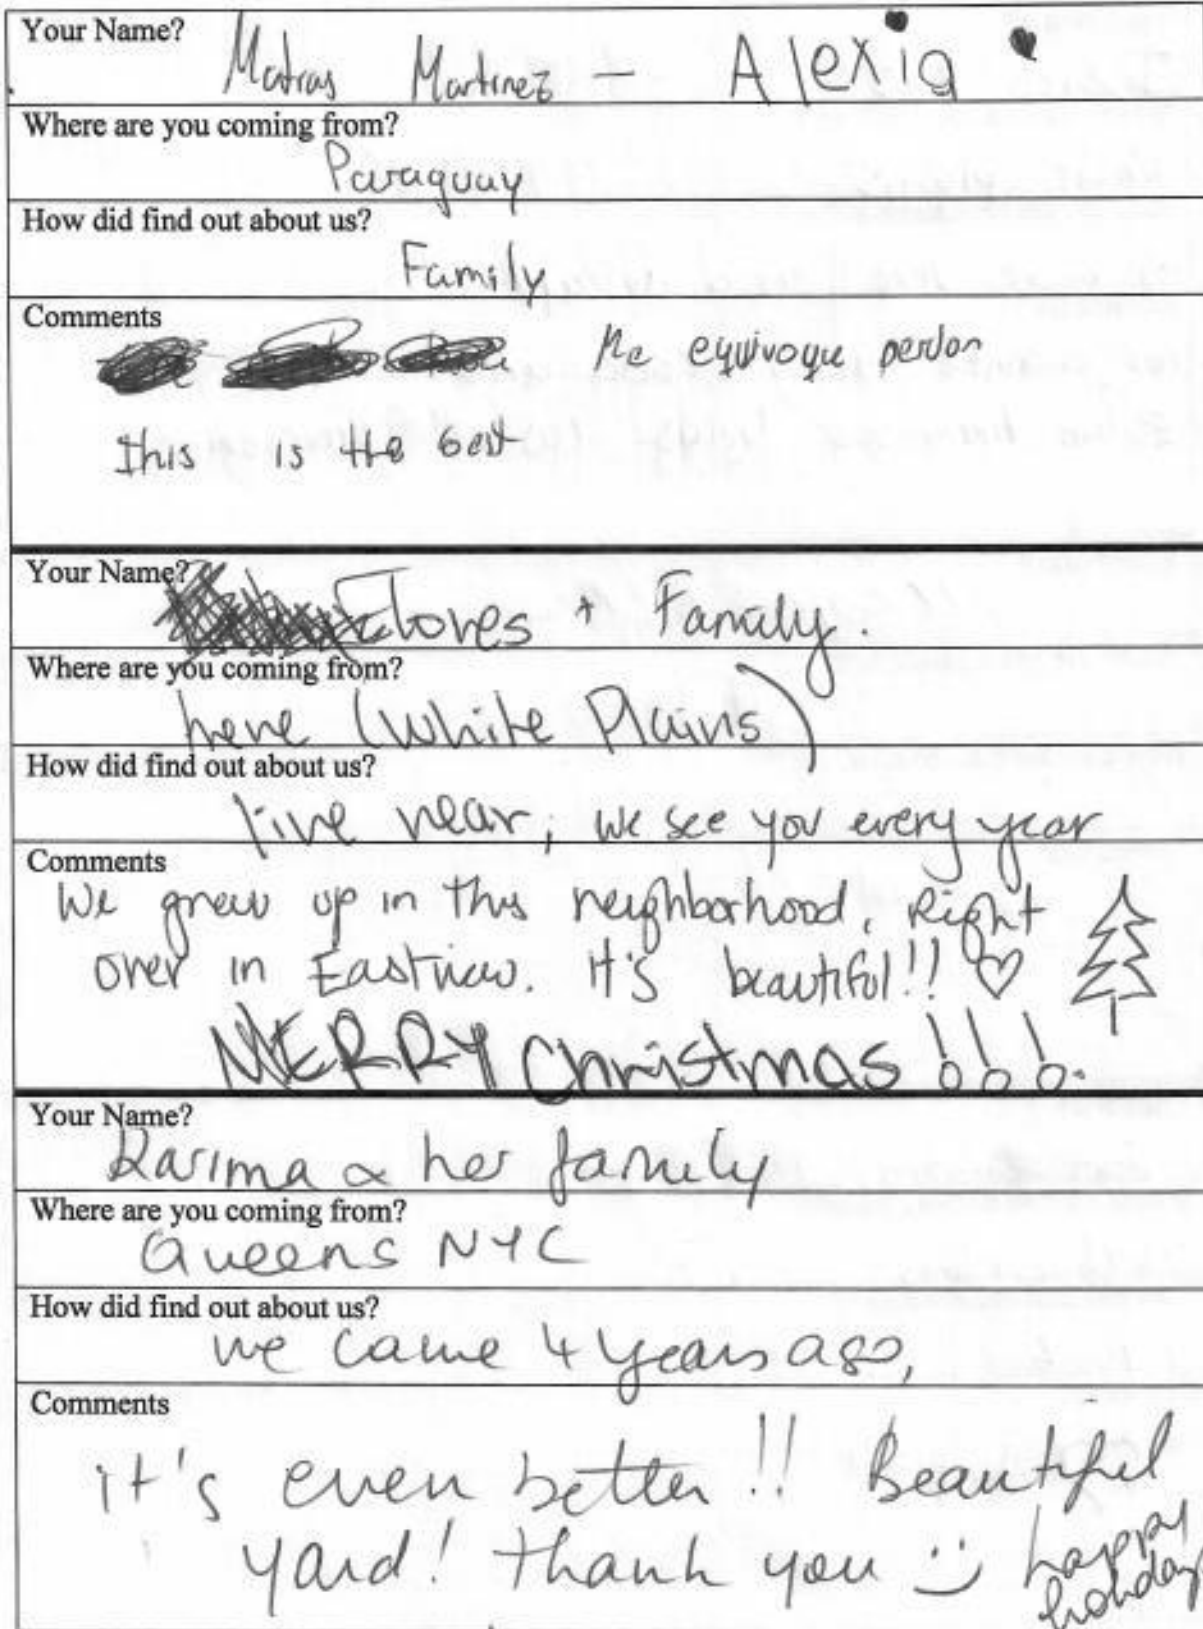 Your Name?
Matias Martinez - Alexia
Where are you coming from?
Paraguay
How did find out about us?
Family
Comments
Me equivoque perdon
This is the best
Your Name?
Flores + Family.
Where are you coming from?
here (White Plains)
How did find out about us?
live near, we see you every year
Comments
We grew up in this neighborhood, Right
over in Eastview. It's beautiful!! ♡
MERRY Christmas !!!
Your Name?
Karima & her family
Where are you coming from?
Queens NYC
How did find out about us?
we came 4 years ago,
Comments
it's even better!! Beautiful
yard! thank you :) happy
holiday